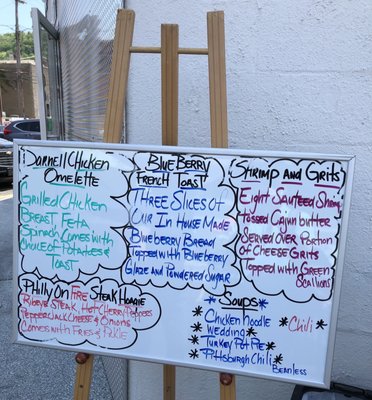 Darnell Chicken
Omelette
Grilled Chicken
Breast Feta
Spinach Comes with
Choice of Potatoes &
Toast
BlueBerry
French Toast
Three Slices of
Our In House Made
Blueberry Bread
Topped with Blueberry
Glaze and Powdered Sugar
Shrimp And Grits
Eight Sauteed Shrimp
Tossed Cajun butter
Served Over Portion
of Cheese Grits
Topped with Green
Scallions
Philly On Fire Steak Hoagie
Ribeye Steak, Hot Cherry Peppers
Pepperjack Cheese & Onions
Comes with Fries & Pickle
Soups
* Chicken Noodle
* Wedding *
* Turkey Pot Pie *
* Pittsburgh Chili *
Beanless
* Chili *